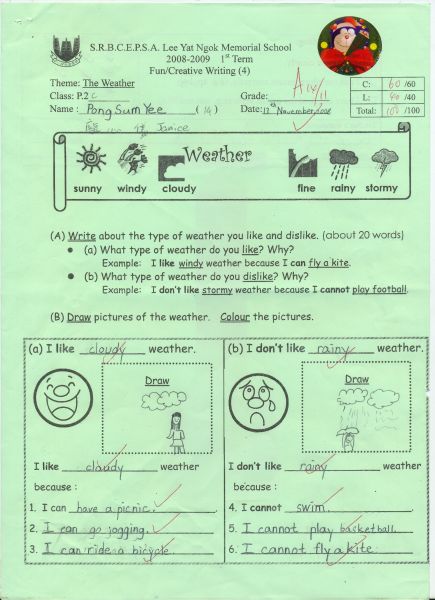 S.R.B.C.E.P.S.A. Lee Yat Ngok Memorial School
2008-2009 1st Term
Fun/Creative Writing (4)
Theme: The Weather
Class: P.2 C
Grade: A 14/11
Name: Pong Sum Yee (14)
Date: 12th November, 2008
Janice
C: 60 /60
L: 40 /40
Total: 100 /100
Weather
sunny windy cloudy fine rainy stormy
(A) Write about the type of weather you like and dislike. (about 20 words)
• (a) What type of weather do you like? Why?
Example: I like windy weather because I can fly a kite.
• (b) What type of weather do you dislike? Why?
Example: I don't like stormy weather because I cannot play football.
(B) Draw pictures of the weather. Colour the pictures.
(a) I like cloudy weather.
Draw
I like cloudy weather
because :
1. I can have a picnic.
2. I can go jogging.
3. I can ride a bicycle.
(b) I don't like rainy weather.
Draw
I don't like rainy weather
because :
4. I cannot swim.
5. I cannot play basketball.
6. I cannot fly a kite.